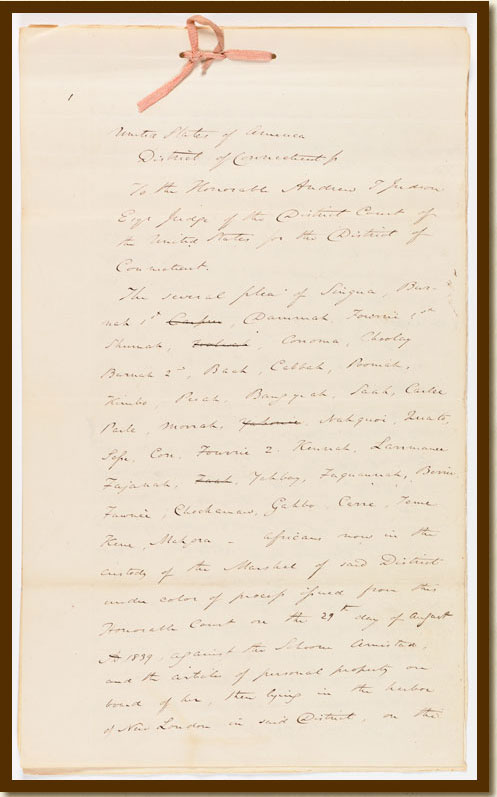 1
United States of America
District of Connecticut ss
To the Honorable Andrew T Judson
Esqr Judge of the District Court of
the United States for the District of
Connecticut.
The several plea of Singua, Bur-
nah 1st, Dammah, Fourrie, 1st
Shumah, Conoma, Chooley
Burnah 2nd, Baah, Cabbah, Poomah,
Kimbo, Peeah, Bang-yeah, Saah, Carlee
Parle, Morrah, Yahome, Nahquoi, Quato,
Sesse, Con, Fourrie 2, Kennah, Lammane
Fajanah, Faah, Yahboy, Faquannah, Berrie,
Fawnie, Chockamaw, Gabbo, Carre, Teme
Kene, Mahgra - Africans now in the
custody of the Marshal of said District
under color of process issued from this
Honorable Court on the 29th day of August
AD 1839, against the Schooner Armistad,
and the articles of personal property on
board of her, then lying in the harbor
of New London in said District, on the